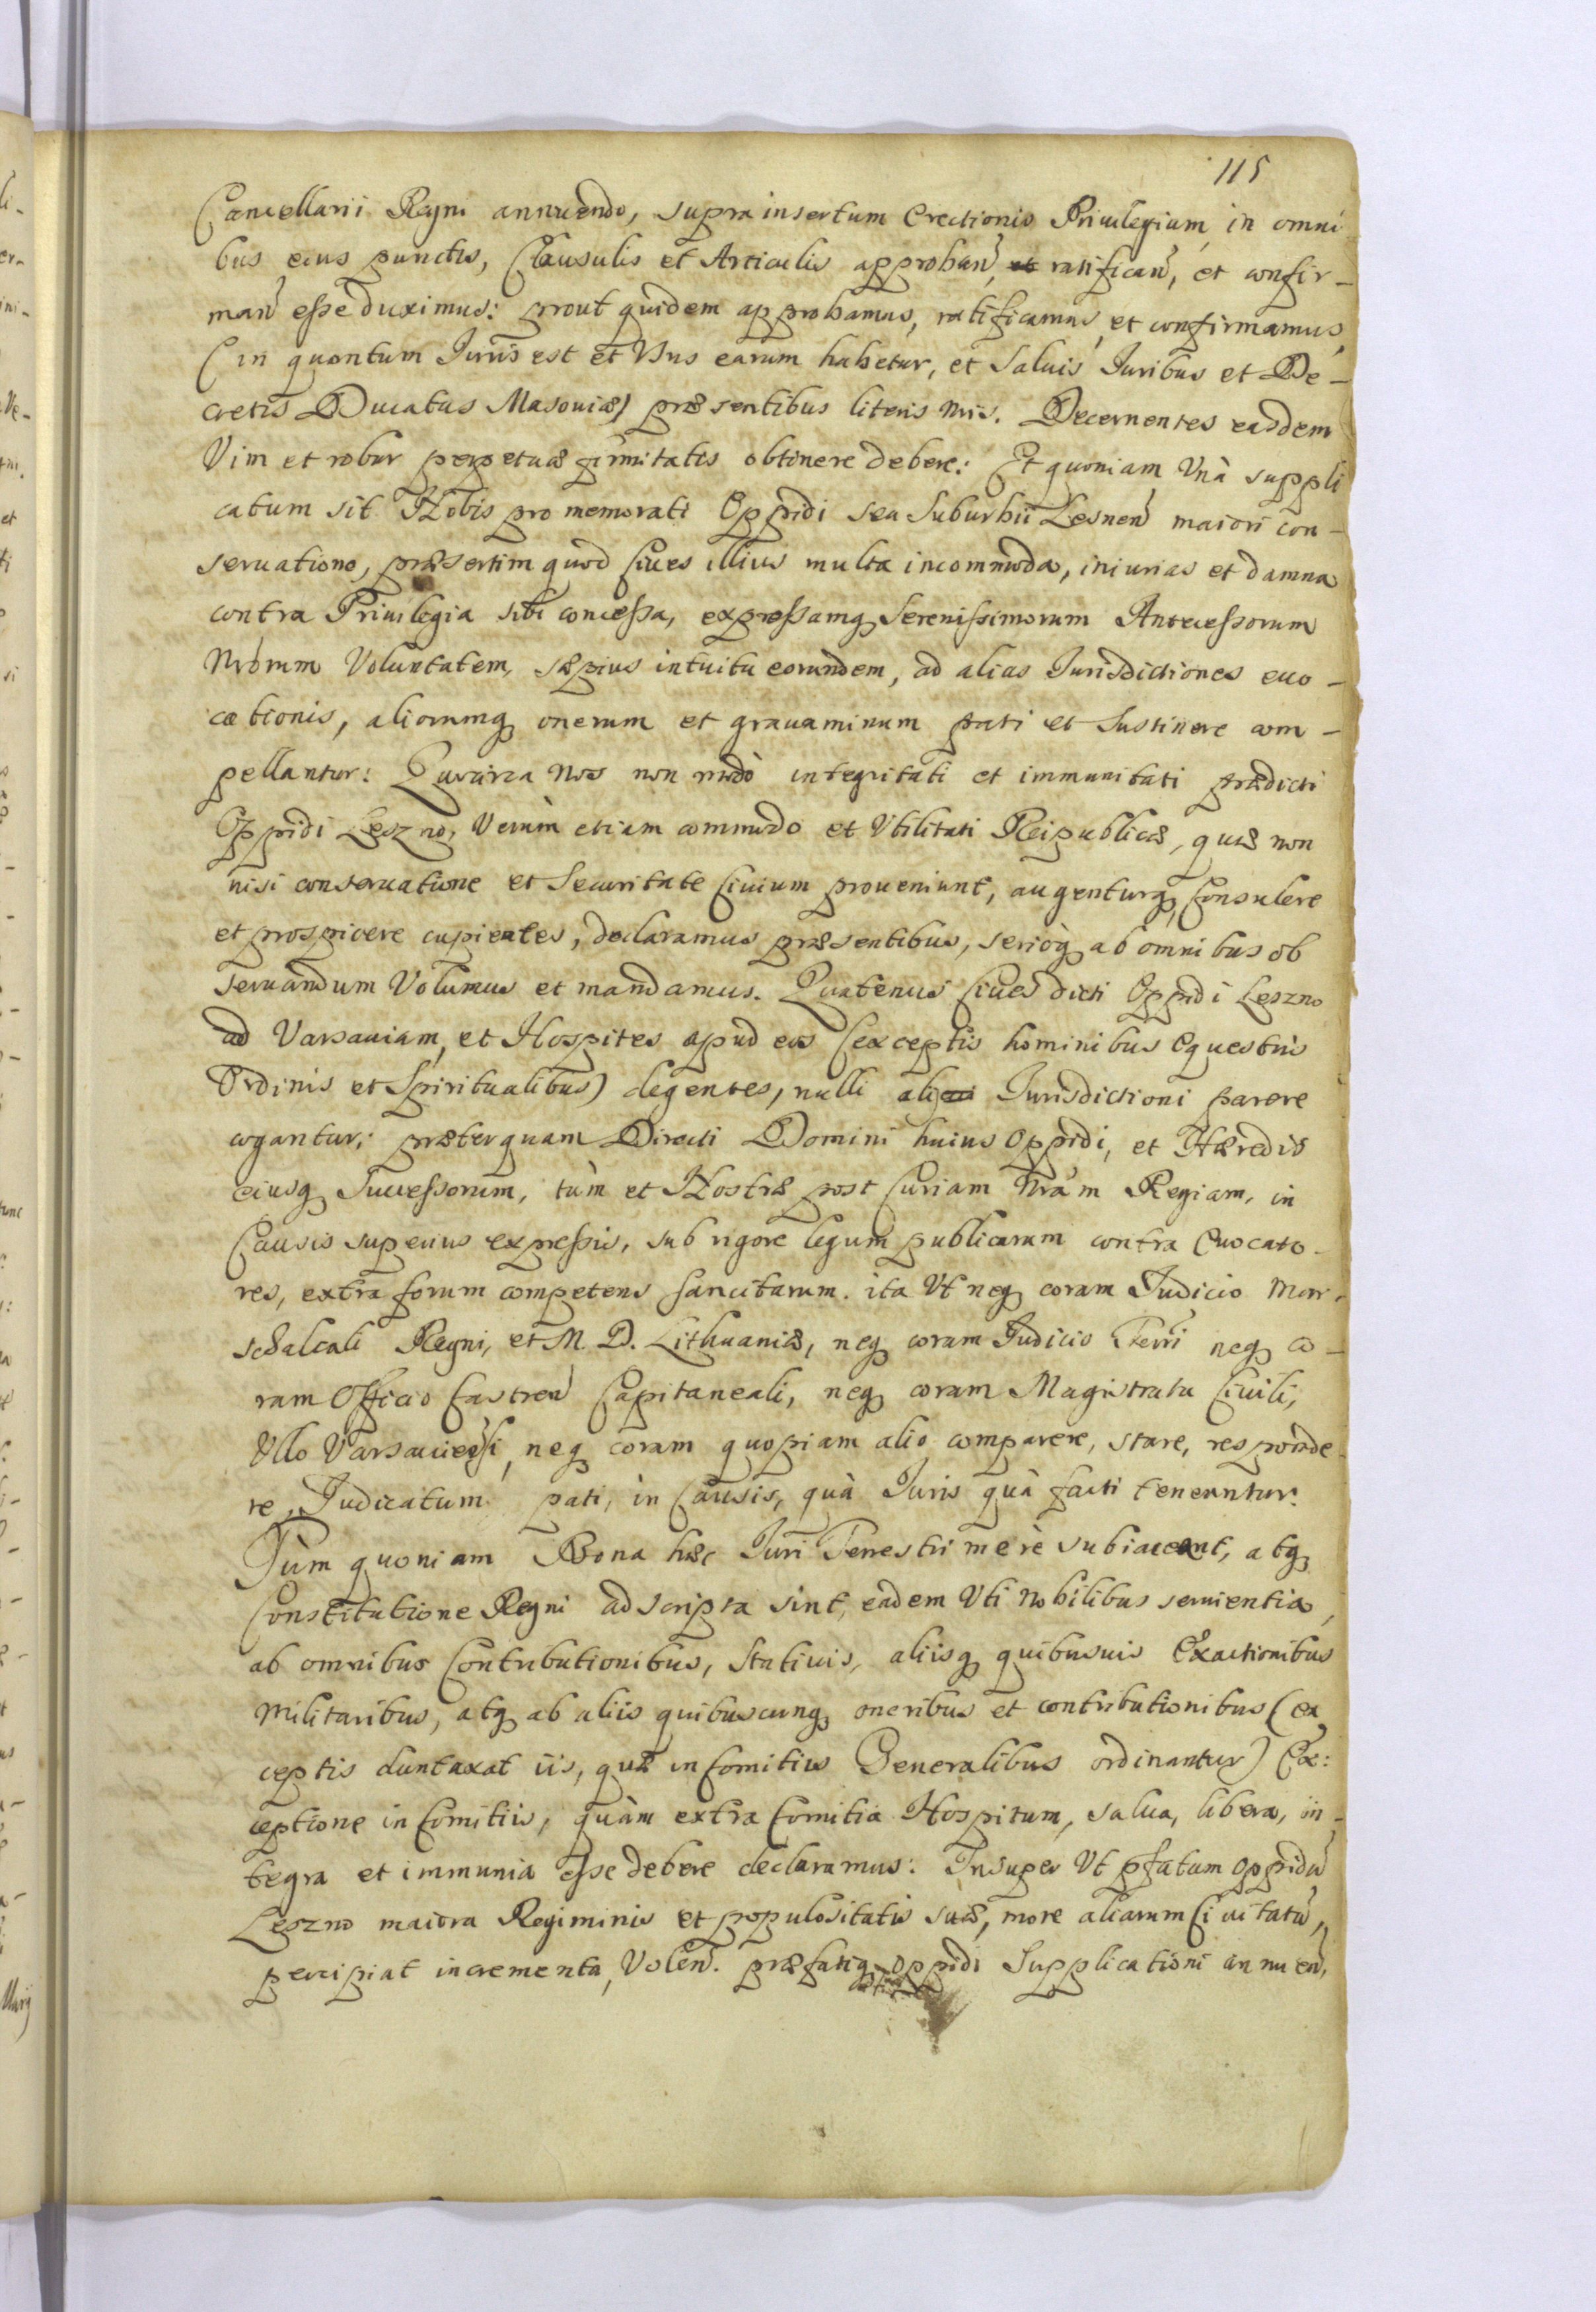 115
Cancellarii Regni annuendo, supra insertum Erectionis Priuilegium, in omni
bus eius punctis, Clausulis et Articulis approban̄, et ratifican̄, et confir-
man̄ eße duximus: prout quidem approbamus, ratificamus, et confirmamus,
(in quantum Juris est et Vsus earum habetur, et Saluis Juribus et De-
cretis Ducatus Masouiæ) præsentibus literis nr̄is. Decernentes easdem
Vim et robur perpetuæ firmitatis obtinere debere: Et quoniam Vnà suppli
catum sit Nobis pro memorati Oppidi seu Suburbii Lesnen̄ maiori con-
seruatione, præsertim quod Ciues illius multa incommoda, iniurias et damna
contra Priuilegia sibi conceßa, expreßamq Serenißimorum Anteceßorum
Nr̄orum Voluntatem, sæpius intuitu eorundem, ad alias Jurisdictiones euo-
cationis, aliorumq onerum et grauaminum pati et Sustinere com-
pellantur: Quocirca Nos non modò integritati et immunitati prædicti
Oppidi Leszno, Verùm etiam commodo et Vtilitati Reipublicæ, quæ non
nisi conseruatione et Securitate Ciuium proueniunt, augenturq, Consulere
et prospicere cupientes, declaramus præsentibus, serioq ab omnibus ob
seruandum Volumus et mandamus. Quatenus Ciues dicti Oppidi Leszno
ad Varsauiam, et Hospites apud eos (exceptis hominibus Equestris
Ordinis et Spiritualibus) degentes, nulli alii Jurisdictioni parere
cogantur; præterquam Directi Domini huius Oppidi, et Hæredis
eiusq Succeßorum, tùm et Nostræ post Curiam Nr̄am Regiam, in
Causis superius expreßis, sub rigore legum publicarum contra Euocato-
res, extra forum competens sancitarum. ita Vt neq coram Judicio Mar-
schalcali Regni, et M. D. Lithuaniæ, neq coram Judicio Terr̄i neq co-
ram Officio Castren̄ Capitaneali, neq coram Magistratu Ciuili,
Vllo Varsauien̄si, neq coram quopiam alio comparere, stare, responde-
re, Judicatum pati, in Causis, quà Juris quà facti teneantur.
Tùm quoniam Bona hæc Juri Terrestri merè subiaceant, atq
Constitutione Regni adscripta sint, eadem Vti Nobilibus seruientia,
ab omnibus Contributionibus, Statiuis, aliisq quibusuis Exactionibus
Militaribus, atq ab aliis quibuscunq oneribus et contributionibus (ex
ceptis duntaxat iis, quæ in Comitiis Generalibus ordinantur) Ex:
ceptione in Comitiis, quàm extra Comitia Hospitum, salua, libera, in-
tegra et immunia eße debere declaramus: Insuper Vt pfatum Oppidū
Leszno maiora Regiminis et populositatis suæ, more aliarum Ciuitatū,
percipiat incrementa, Volen̄. præfatiq Oppidi Supplicationi annuen̄,